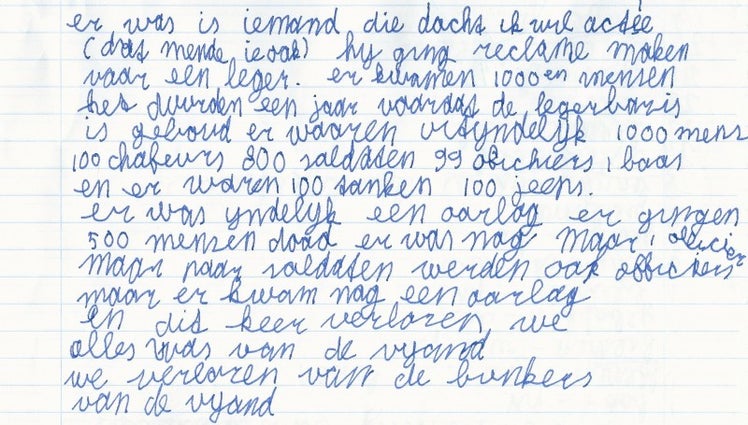 er was is iemand die dacht ik wil actée
(dat mende ie ook) hy ging reclame maken
vaar een leger. er kwamen 1000en mensen
het duurden een jaar voordat de legerbazis
is geboud er waaren uityndelijk 1000 mens
100 chafeurs 800 soldaten 99 ofichiers 1 baas
en er waren 100 tanken 100 jeeps.
er was yndelyk een oorlog er gingen
500 mensen dood er was nog maar 1 oficier
maar paar soldaten werden ook officiers
maar er kwam nog een oorlog
en dit keer verloren we
alles was van de vyand
we verloren van de bunkers
van de vyand